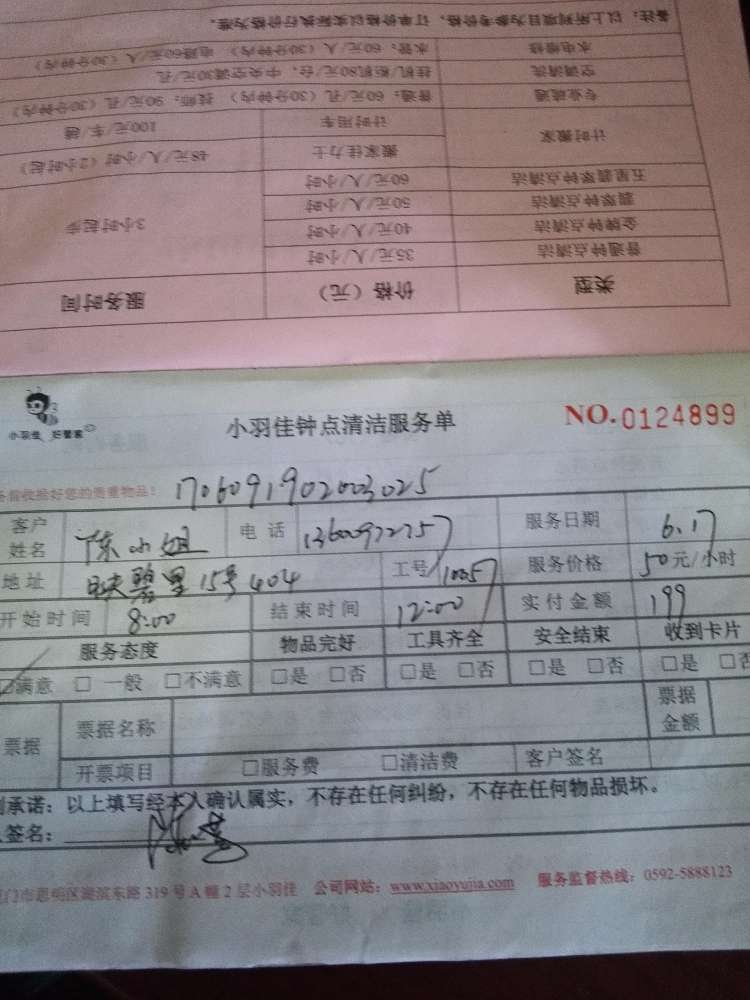 备注：以上所列项目为参考价格，订单价格以实际执行价格为准。
水电维修 水管：60元/人（30分钟内） 电路60元/人（30分钟内）
空调清洗 挂机/柜机80元/台，中央空调30元/孔
专业疏通 普通：60元/孔（30分钟内） 技师：90元/孔（30分钟内）
计时搬家 计时用车 100元/车/趟
搬家佳力士 48元/人/小时（2小时起）
五星翡翠钟点清洁 60元/人/小时
翡翠钟点清洁 50元/人/小时 3小时起步
金牌钟点清洁 40元/人/小时
普通钟点清洁 35元/人/小时
类型 价格（元） 服务时间
小羽佳 好管家
小羽佳钟点清洁服务单 NO.0124899
收拾好您的贵重物品！ 1706091902003025
客户姓名 陈小姐 电话 服务日期 6.17
地址 碧里15号404 工号 10057 服务价格 50元/小时
开始时间 8:00 结束时间 12:00 实付金额 199
服务态度 物品完好 工具齐全 安全结束 收到卡片
☑满意 □一般 □不满意 □是 □否 □是 □否 □是 □否 □是 □否
票据 票据名称 票据金额
开票项目 □服务费 □清洁费 客户签名
承诺：以上填写经本人确认属实，不存在任何纠纷，不存在任何物品损坏。
签名：
门市思明区湖滨东路319号A幢2层小羽佳 公司网站：www.xiaoyujia.com 服务监督热线：0592-5888123